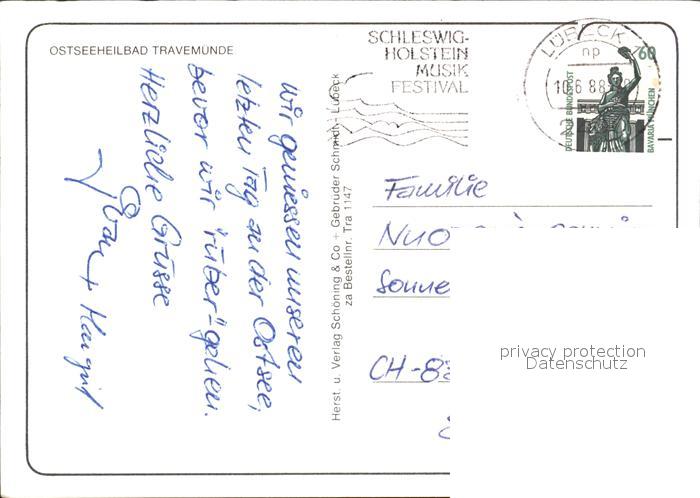 OSTSEEHEILBAD TRAVEMÜNDE
wir geniessen unseren
letzten Tag an der Ostsee,
bevor wir "rüber"-gehen.
Herzliche Grüsse
+ Margrit
Herst. u. Verlag Schöning & Co + Gebrüder Schmidt - Lübeck
za Bestellnr. Tra 1147
SCHLESWIG-
HOLSTEIN
MUSIK
FESTIVAL
LÜBECK
np
60
DEUTSCHE BUNDESPOST
BAVARIA MÜNCHEN
Familie
Sonne
CH-8
privacy protection
Datenschutz